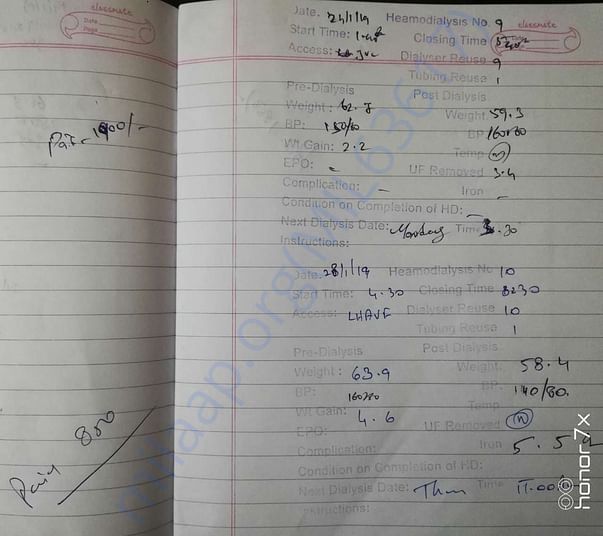 classmate
Date
Page
Paid 800
classmate
Date. 24/1/19 Heamodialysis No 9
Start Time: Closing Time
Access: Dialyser Reuse 9
Tubing Reuse 1
Pre-Dialysis Post Dialysis
Weight: 62. Weight 59.3
BP: 150/80 BP 160/80
Wt Gain: 2.2 Temp (N)
EPO: - UF Removed 3.4
Complication: - Iron -
Condition on Completion of HD: -
Next Dialysis Date: Monday Time .30
Instructions:
Date. 28/1/19 Heamodialysis No 10
Start Time: 4.30 Closing Time 8230
Access: LHAVF Dialyser Reuse 10
Tubing Reuse 1
Pre-Dialysis Post Dialysis
Weight: 63.9 Weight: 58.4
BP: 160/80 BP: 140/80.
Wt Gain: 4.6 Temp
EPO: UF Removed (N)
Complication: Iron 5.5
Condition on Completion of HD:
Next Dialysis Date: Thu Time 11.00
Instructions:
milaap.org
honor 7x